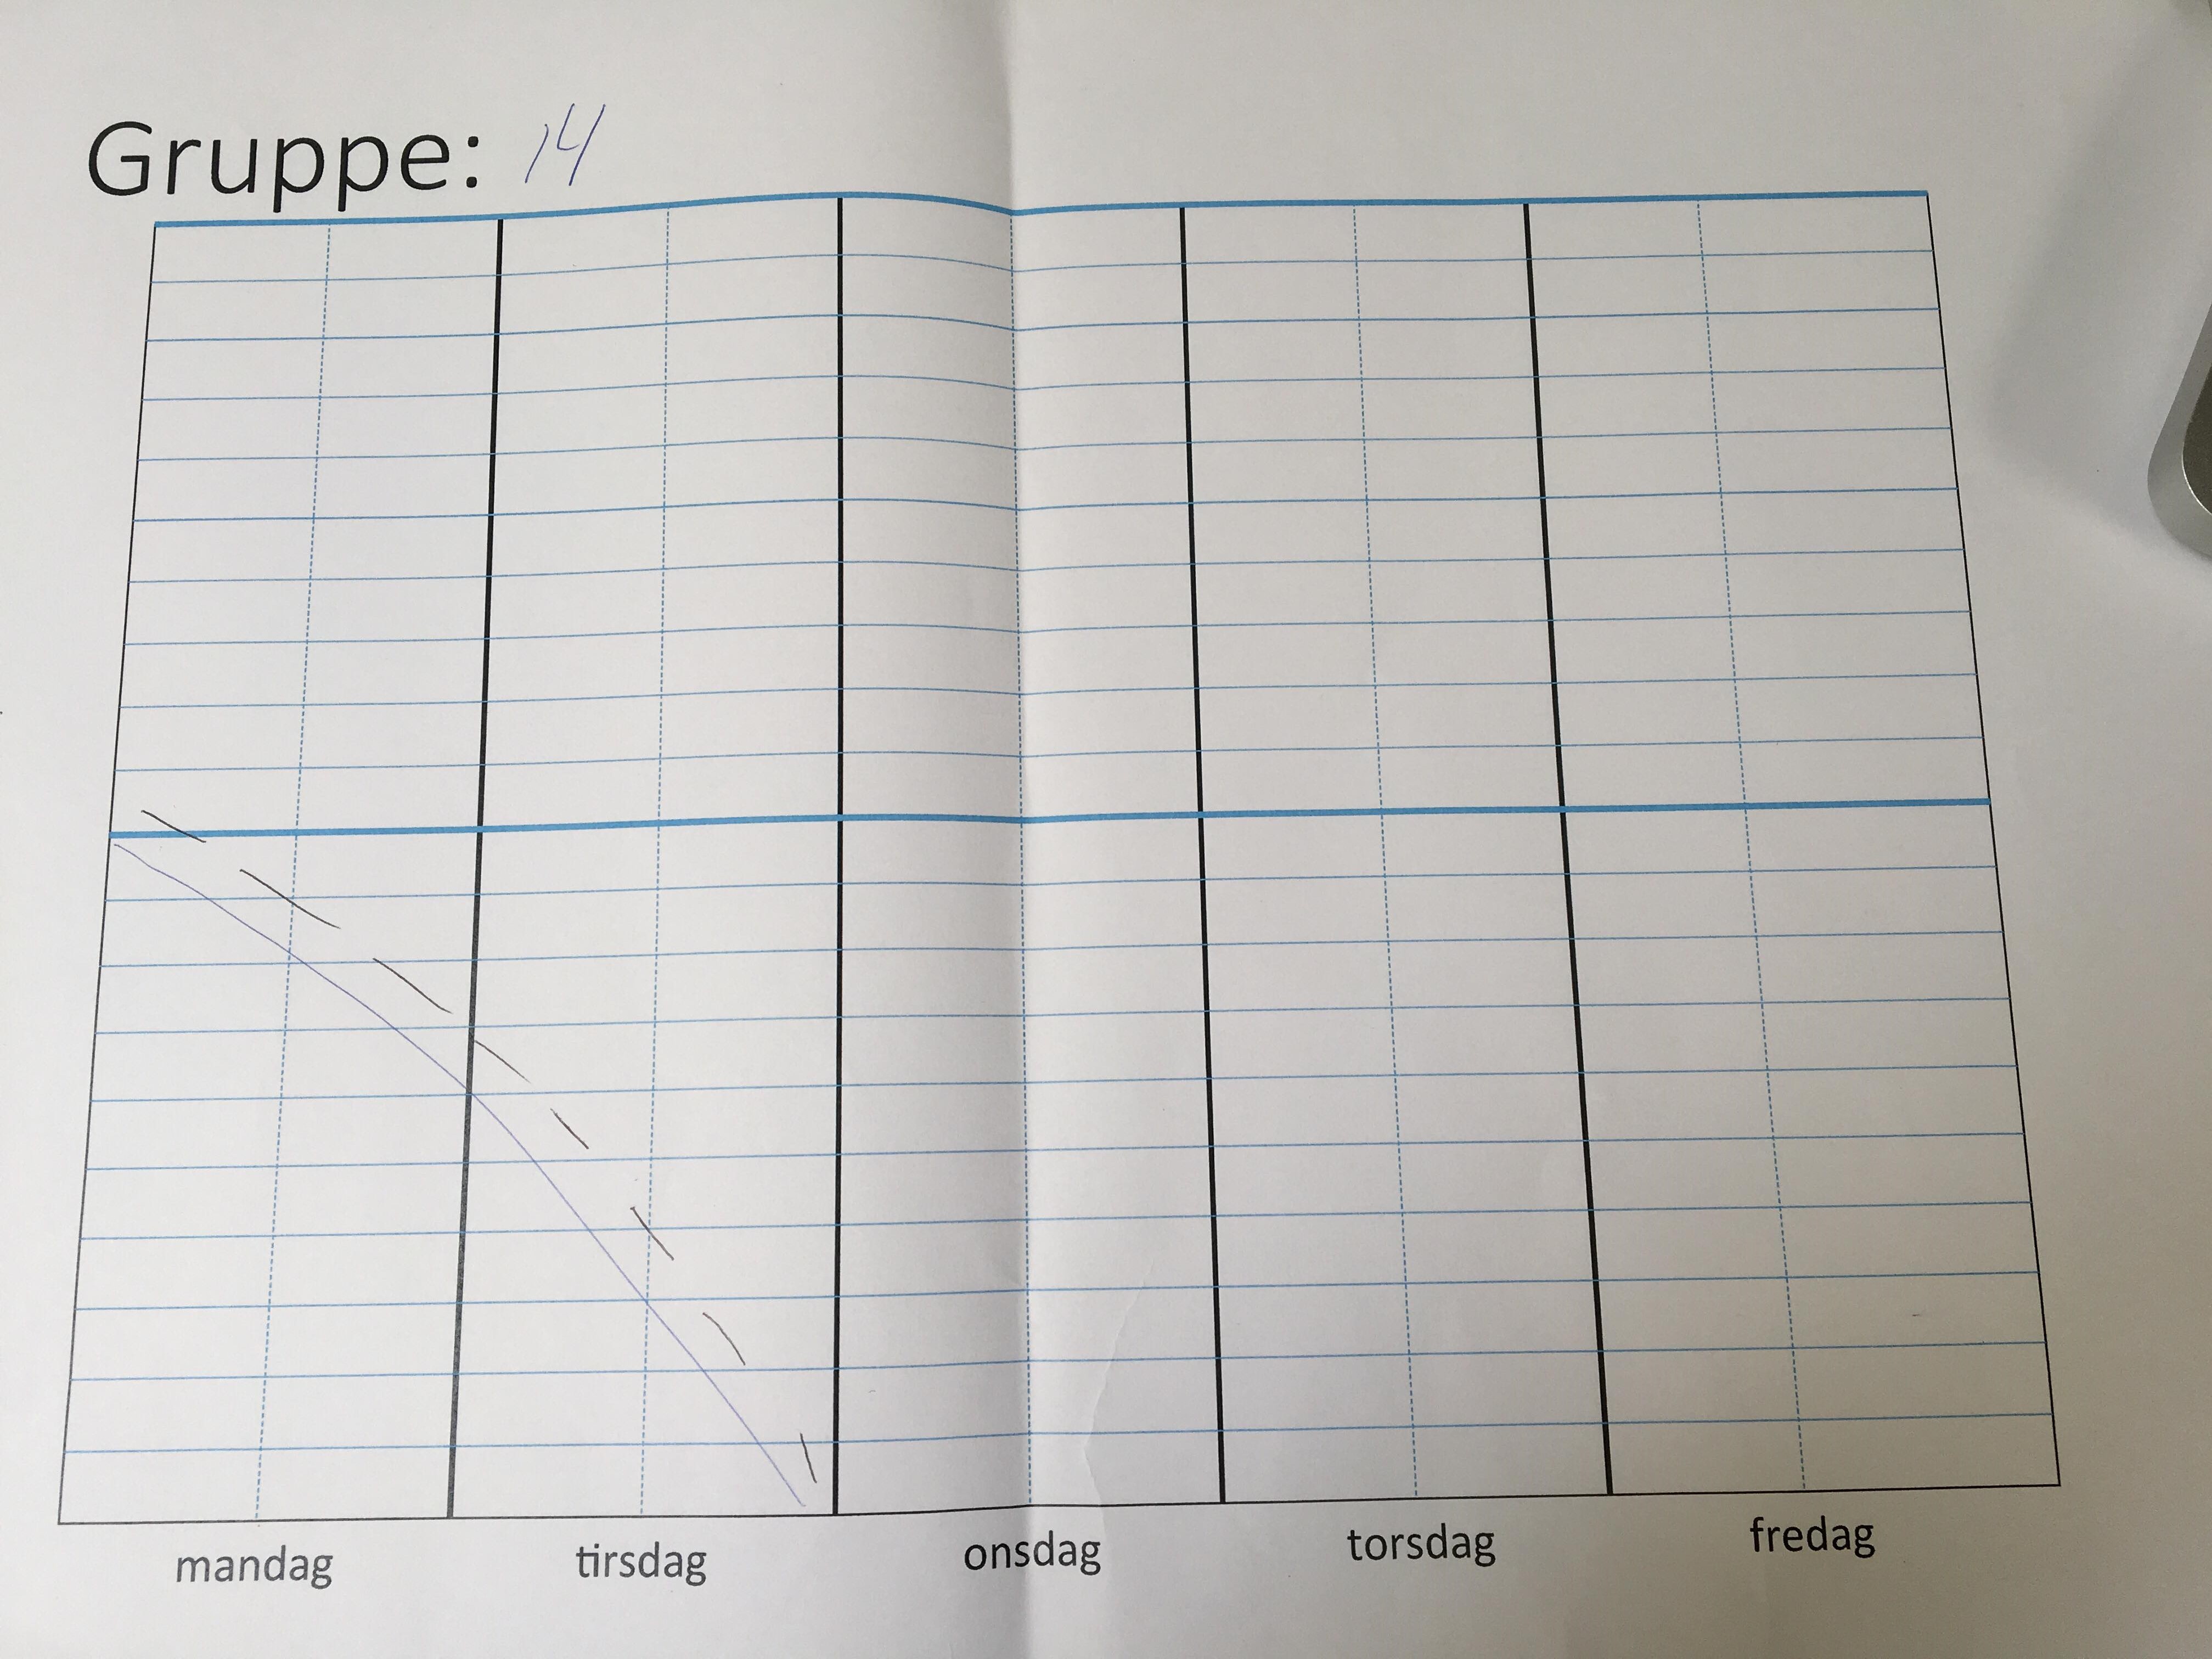 Gruppe: 14
mandag tirsdag onsdag torsdag fredag